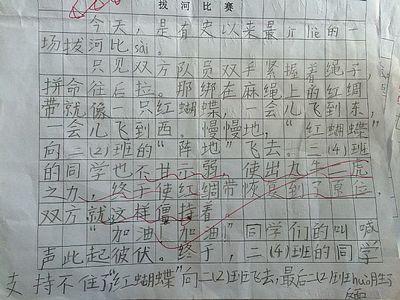 拔河比赛
今天，是有史以来最jī liè的一
场拔河比sài.
只见双方队员双手紧握着绳子，
拼命往后拉。那绑在麻绳上的红绸
带就像一只红蝴蝶，一会儿飞到东，
一会儿飞到西。慢慢地，“红蝴蝶”
向二(2)班的“阵地”飞去。二(4)班
的同学也不甘示弱，使出九牛二虎
之力，终于使红绸带恢复到了原位，
双方就这样僵持着
“加油！加油！”同学们的叫喊
声此起彼伏。终于，二(4)班的同学
支持不住了“红蝴蝶”向二(2)班飞去，最后二(2)班huò胜了